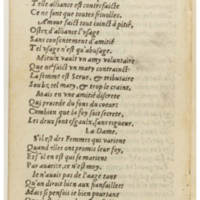 Telle alliance est contrefaicte
Ce ne sont que toutes
Amour faict tout iniuste à pitié,
Oster d'alliance l'vsage
Sans consentement d'amitié
Tel vsage n'est qu'abusage.
Mieulx vault vn amy voluntaire
Que ne faict vn mary contrainct:
La femme est Serue, & tributaire
Soubz tel mary, trop crainct,
Mais en vne amitié discrete
Qui procede du fons du coeur
Combien que la foy soit secrete,
Les deux sont esgaulx, sans rigueur.
La Dame.
S'il est des Femmes qui varient
Quand elles ont promis leur foy,
Et s'il en est qui se marient
Par auarice, ce n'est moy,
Ie n'auois pas de l'aage tant
Qu'on diroit bien aux fiansailles
Et si pensois ie bien pourtant